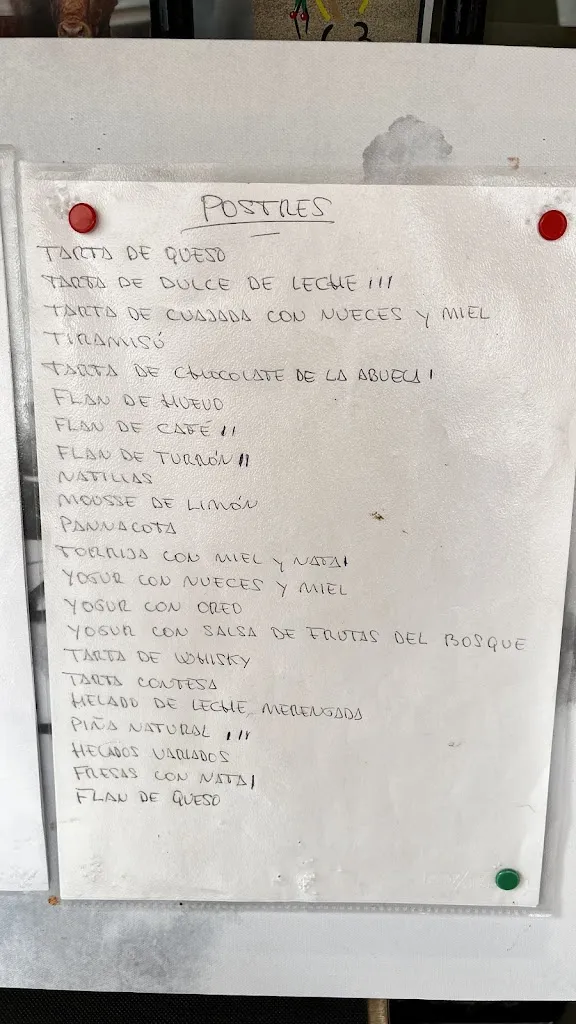 POSTRES
TARTA DE QUESO
TARTA DE DULCE DE LECHE !!!
TARTA DE CUAJADA CON NUECES Y MIEL
TIRAMISÚ
TARTA DE CHOCOLATE DE LA ABUELA !
FLAN DE HUEVO
FLAN DE CAFÉ !!
FLAN DE TURRÓN !!
NATILLAS
MOUSSE DE LIMÓN
PANNACOTA
TORRIJA CON MIEL Y NATA !
YOGUR CON NUECES Y MIEL
YOGUR CON OREO
YOGUR CON SALSA DE FRUTAS DEL BOSQUE
TARTA DE WHISKY
TARTA CONTESA
HELADO DE LECHE MERENGADA
PIÑA NATURAL !!!
HELADOS VARIADOS
FRESAS CON NATA !
FLAN DE QUESO